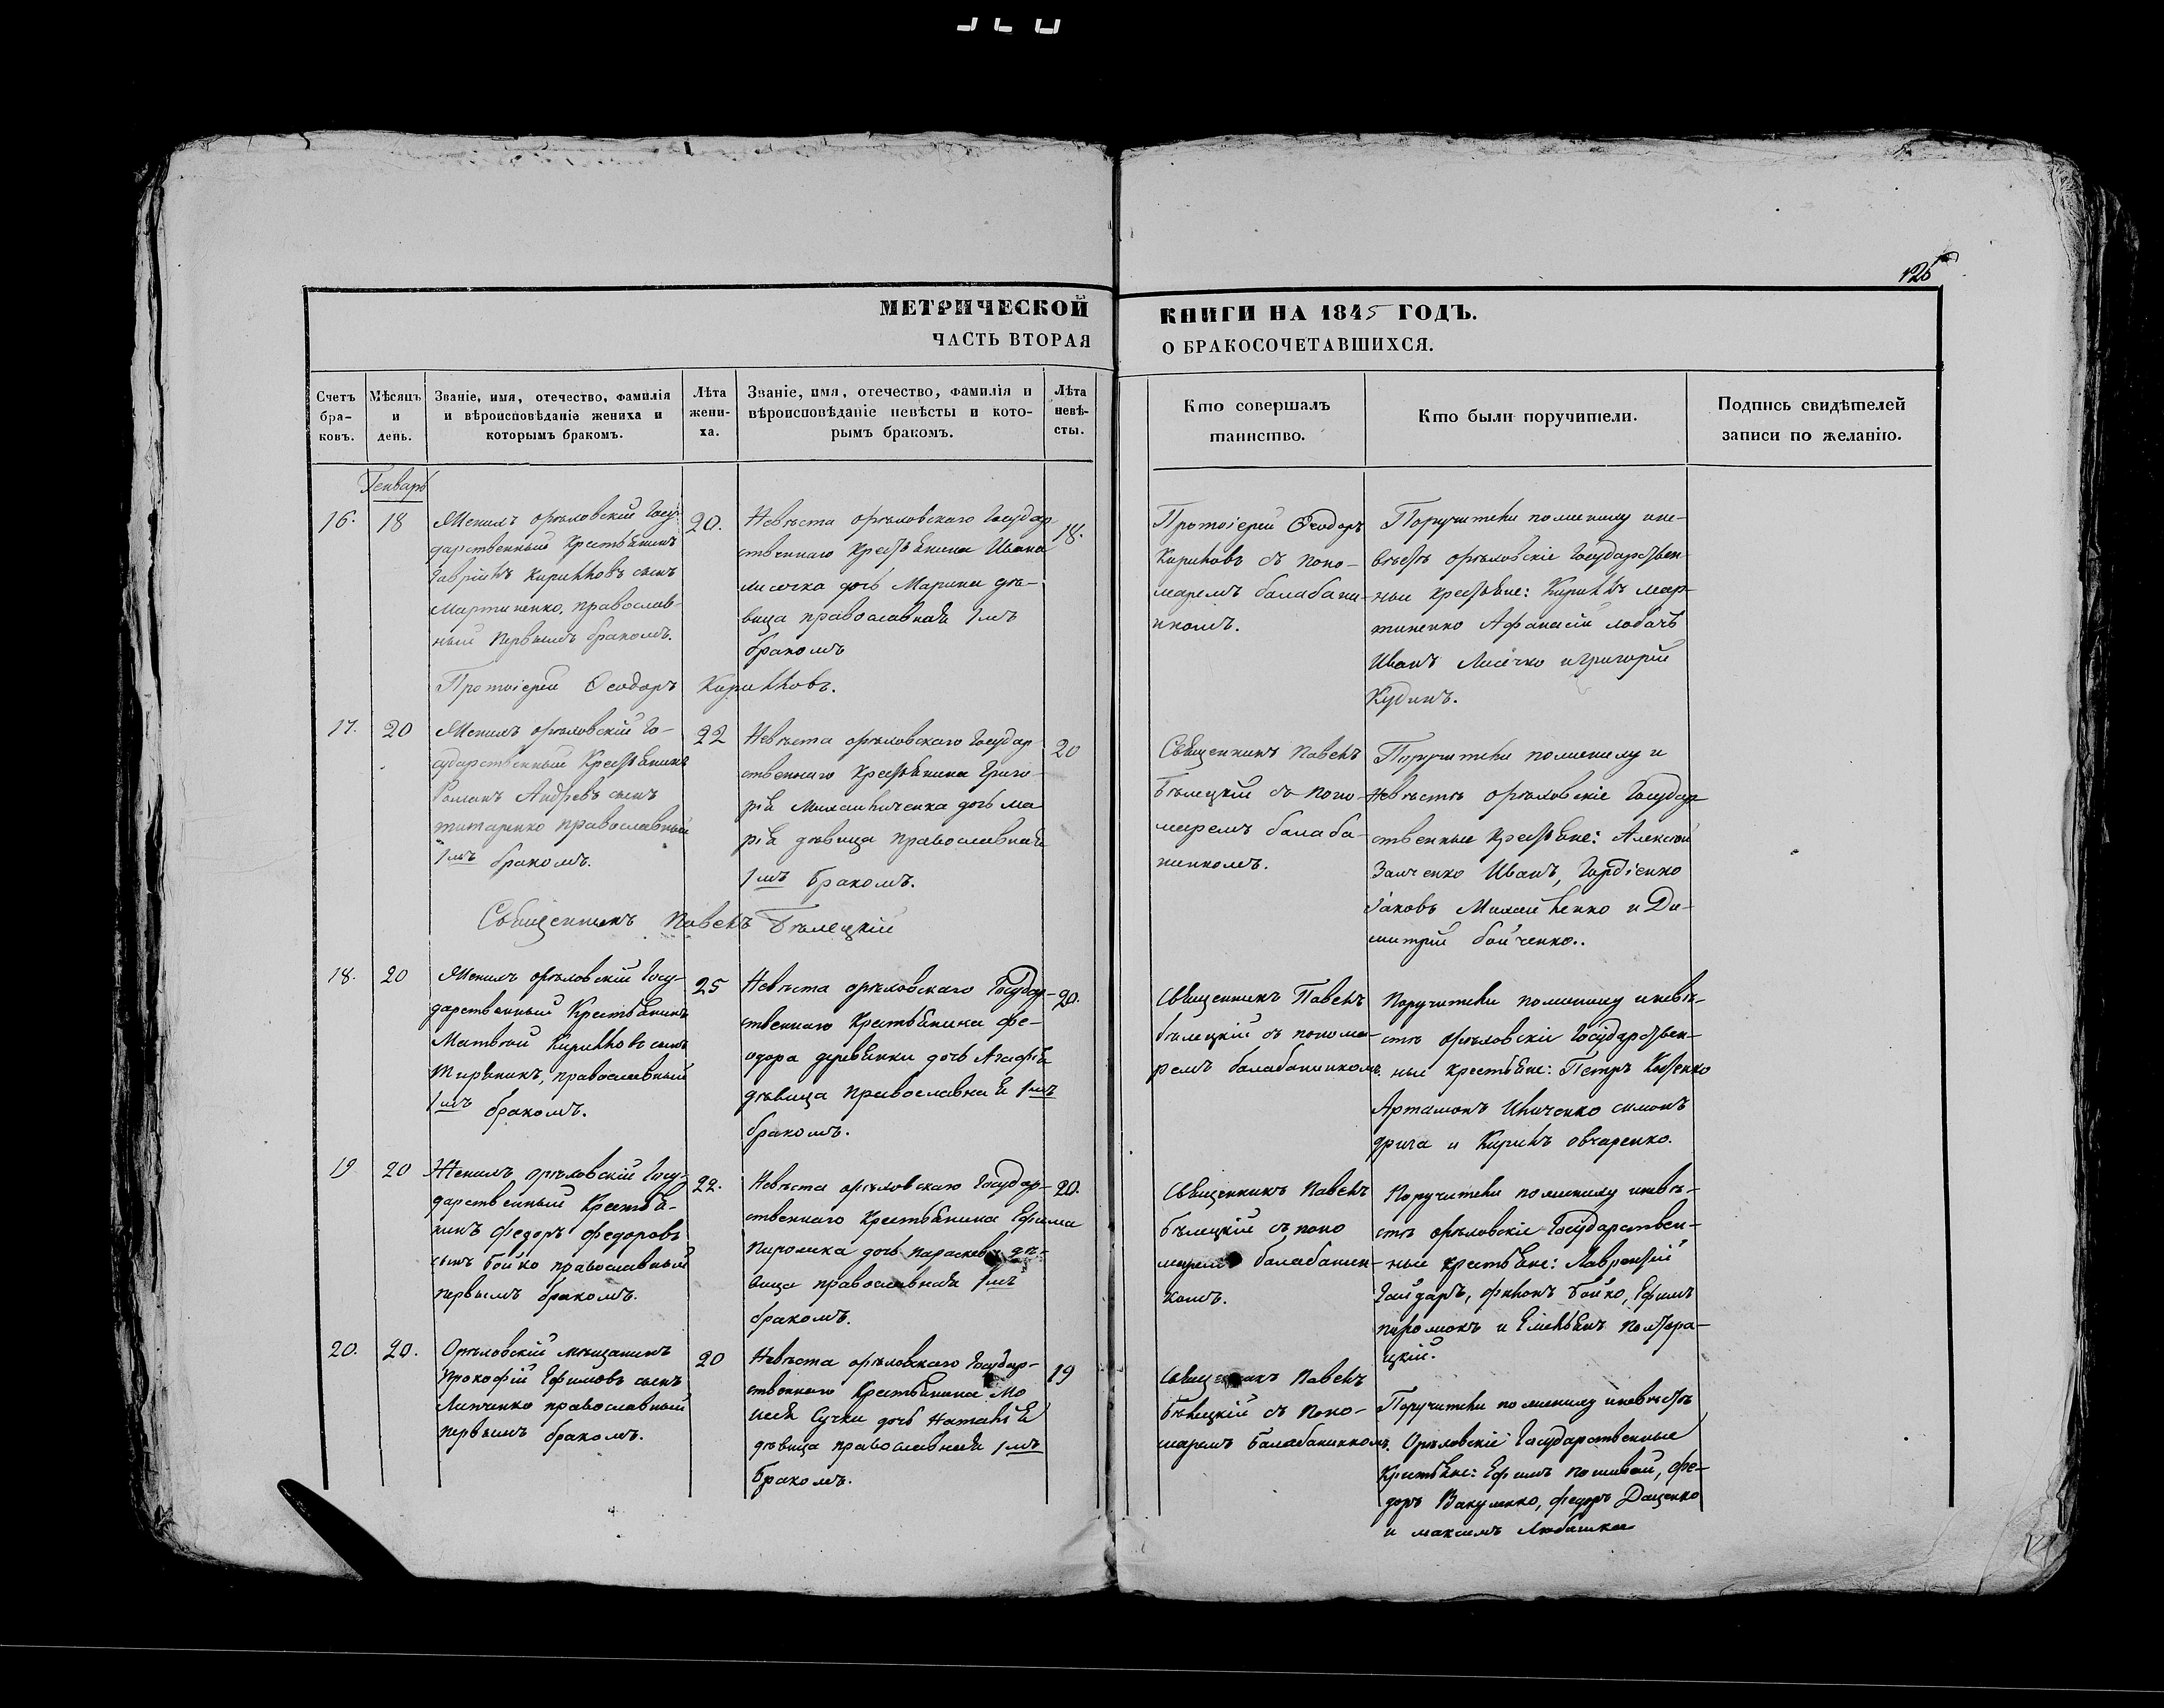 126
МЕТРИЧЕСКОЙ
ЧАСТЬ ВТОРАЯ
КНИГИ НА 1845 ГОДЪ.
О БРАКОСОЧЕТАВШИХСЯ.
Счетъ бра-ковъ.
Мѣсяцъ и день.
Званіе, имя, отечество, фамилія
и вѣроисповѣданіе жениха и
которымъ бракомъ.
Лѣта жени-ха.
Званіе, имя, отечество, фамилія и
вѣроисповѣданіе невѣсты и кото-
рымъ бракомъ.
Лѣта невѣ-сты.
Кто совершалъ
таинство.
Кто были поручители.
Подпись свидѣтелей
записи по желанію.
Генварь
16.
18
Женихъ орѣловскій Госу-
дарственный Крестьянинъ
Гавріилъ Кирилловъ сынъ
Мартиненко, православ-
ный первымъ бракомъ.
20.
Невѣста орѣловскаго Государ-
ственнаго крестьянина Ивана
лисечка дочь Марина дѣ-
вица православная 1мъ
бракомъ
18.
Протоіерей Ѳеодоръ
Кириловъ съ поно-
маремъ балабани-
нкомъ.
Поручители по жениху и не-
вѣстѣ орѣловскіе Государствен-
ные крестьяне: Кирилъ мар-
тиненко Афанасій лобачъ
Иванъ Лисечко и григорій
Кудинъ.
Протоіерей Ѳеодоръ Кирилловъ.
17.
20
Женихъ орѣловскій Го-
сударственный Крестьянинъ
Романъ Андреевъ сынъ
титаренко православный
1мъ бракомъ.
22
Невѣста орѣловскаго Государ-
ственнаго крестьянина Григо-
рія Михайличенка дочь ма
рія дѣвица православная
1мъ бракомъ.
20
Священникъ Павелъ
Бѣлецкій съ поно-
маремъ балаба-
нинкомъ.
Поручители по жениху и
Невѣстѣ орѣловскіе Государ
ственные крестьяне: Алексѣй
Заиченко Иванъ, Гордіенко
Іаковъ Михайленко и Ди-
митрій бойченко..
Священникъ Павелъ Бѣлецкій
18.
20
Женихъ орѣловскій Госу-
дарственный Крестьянинъ
Матвѣй Кирилловъ сынъ
православный
1мъ бракомъ.
25
Невѣста орѣловскаго Государ-
ственнаго Крестьянина фе-
одора деревянки дочь Агафія
дѣвица Православная 1мъ
бракомъ.
20.
Священникъ Павелъ
бѣлецкій съ понома-
ремъ балабанинкомъ.
Поручители по жениху и невѣ-
стѣ орѣловскіе Государствен-
ные крестьяне: Петръ
Артамонъ Ильченко симонъ
и Кирилъ овчаренко.
19
20
Женихъ орѣловскій Госу-
дарственный Крестья-
нинъ федоръ федоровъ
сынъ бойко православный
первымъ бракомъ.
22.
Невѣста орѣловскаго Государ-
ственнаго Крестьянина Ефима
дочь параскева дѣ-
вица православная 1мъ
бракомъ.
20.
Священникъ Павелъ
бѣлецкій съ поно
маремъ балабанин-
комъ.
Поручители по жениху и невѣ-
стѣ орѣловскіе Государствен-
ные крестьяне: Лаврентій
Гайдаръ, филонъ бойко, Ефимъ
и Емельянъ Полтора-
цкій.
20.
20.
Орѣловскій мѣщанинъ
прокофій Ефимовъ сынъ
Липченко православный
первымъ бракомъ.
20
Невѣста орѣловскаго Государ-
ственнаго Крестьянина Мо
исея Сучки дочь Наталія
дѣвица православная 1мъ
бракомъ.
19
Священникъ Павелъ
бѣлецкій съ поно-
маремъ балабанинкомъ.
Поручители по жениху и невѣстѣ
Орѣловскіе Государственные
Крестьяне: Ефимъ пошивай, фе-
доръ Вакуленко, федоръ Даценко
и максимъ Любашка